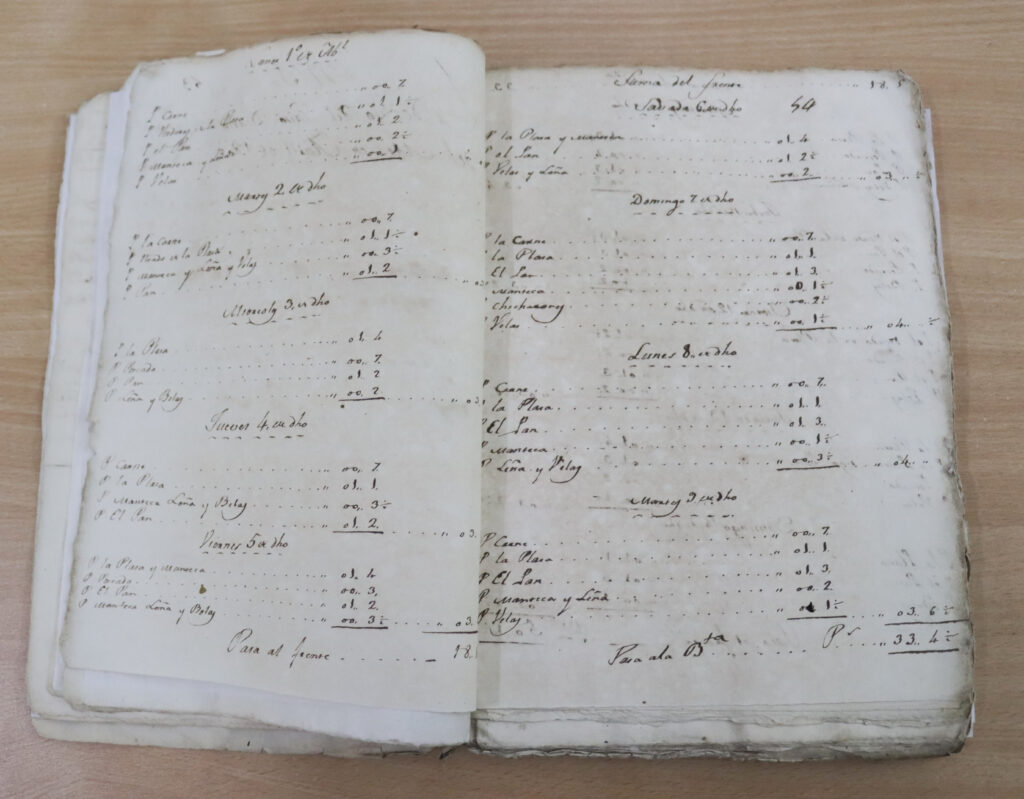 Lunes 1º de
P Carne 00.. 7.
P 01.. 1½
P el Pan 01.. 2.
P Manteca y 00.. 2½
P Velas
Martes 2. de dho
P la Carne 00.. 7.
P en la Plasa 01.. 1½
P Manteca y Leña y Velas 00.. 3½
P Pan 01.. 2
Miercoles 3. de dho
P la Plasa 01.. 4
P Pescado 00.. 7.
P Pan 01.. 2
P Leña y Belas 00.. 2
Jueves 4. de dho
P Carne 00.. 7
P la Plasa 01.. 1.
P Manteca Leña y Belas 00.. 3½
P El Pan 01.. 2. 03.
Viernes 5 de dho
P la Plasa y Manteca 01.. 4
P Pescado 00.. 3.
P El Pan 01.. 2.
P Manteca Leña y Belas 00.. 3½ 03.
Pasa al frente 18.
Suma del frente 18.
Sabado 6 de dho 54
P la Plasa y Manteca 01.. 4
P el Pan 01.. 2½
P Velas y Leña 00.. 2. 03
Domingo 7. de dho
P la Carne 00.. 7.
P la Plasa 01.. 1.
P El Pan 01.. 3.
P Manteca 00.. 1½
P 00.. 2½
P Velas 00.. 1½ 04.. ½
Lunes 8.. de dho
P Carne 00.. 7.
P la Plasa 01.. 1
P El Pan 01.. 3.
P Manteca 00.. 1½
P Leña y Velas 00.. 3½ 04..
Martes 9 de dho
P Carne 00.. 7.
P la Plasa 01.. 1.
P El Pan 01.. 3.
P Manteca y Leña 00.. 2.
P Velas 1½ 03. 6½
Pasa ala Bta Ps 33.. 4½